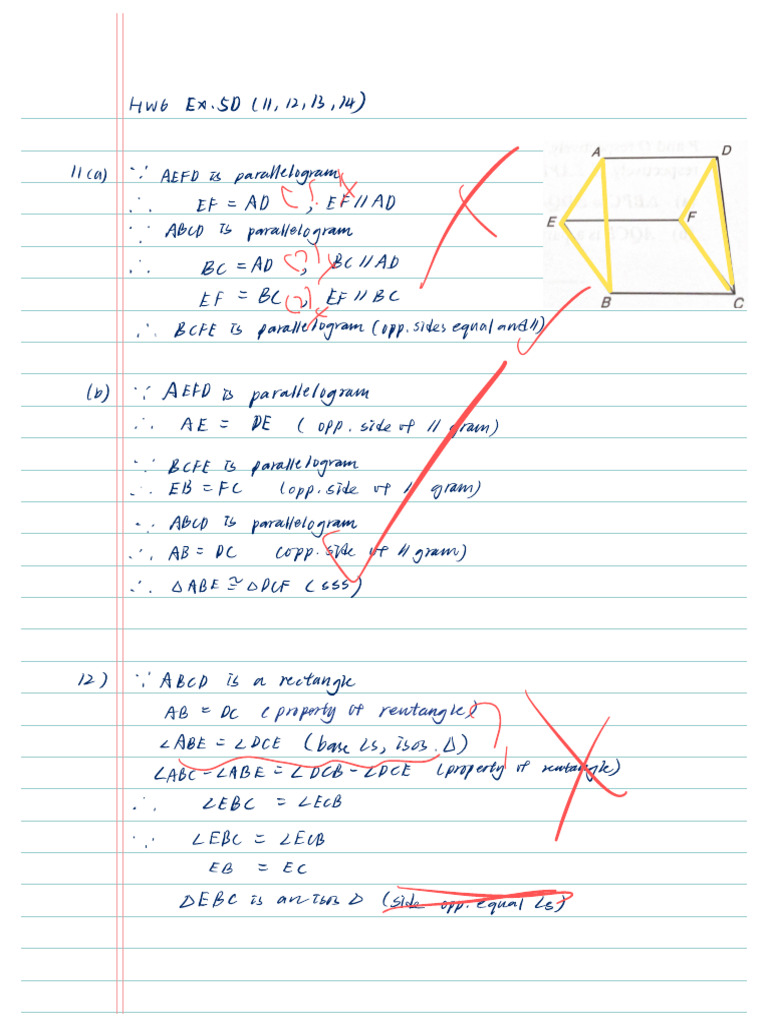 HW6 Ex.5D (11, 12, 13, 14)
11(a) ∵ AEFD is parallelogram
∴ EF = AD (?), EF // AD
∵ ABCD is parallelogram
∴ BC = AD (?), BC // AD
EF = BC (?), EF // BC
∴ BCFE is parallelogram (opp. sides equal and //)
A D
E F
B C
(b) ∵ AEFD is parallelogram
∴ AE = DE (opp. side of // gram)
∵ BCFE is parallelogram
∴ EB = FC (opp. side of // gram)
∵ ABCD is parallelogram
∴ AB = DC (opp. side of // gram)
∴ △ABE ≅ △DCF (SSS)
12) ∵ ABCD is a rectangle
AB = DC (property of rentangle) ?
∠ABE = ∠DCE (base ∠s, isos. △)
∠ABC - ∠ABE = ∠DCB - ∠DCE (property of rentangle)
∴ ∠EBC = ∠ECB
∵ ∠EBC = ∠ECB
EB = EC
△EBC is an isos △ (side opp. equal ∠s)